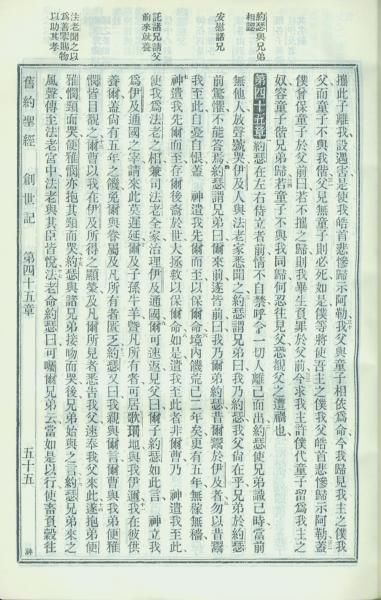 約瑟與兄弟
相認
安慰諸兄
託諸兄請父
前來就養
法老聞之以
為善眾賜物
以助其孝
攜此子離我設遇害是使我皓首悲慘歸示阿勒我父與童子相依為命今我歸見我主之僕我
父而童子不與我偕父見無童子則必死如是僕等將使吾主之僕我父皓首悲慘歸示阿勒蓋
僕曾保童子於父前曰若不攜之歸則我畢生負罪於父前今求我主許僕代童子留為我主之
奴容童子偕兄弟歸若童子不與我同歸何忍往見父恐覩父之遭禍也
第四十五章約瑟在左右侍立者前情不自禁呼令一切人離己而出約瑟使兄弟識己時當前
無他人放聲號哭伊及人與法老家悉聞之約瑟謂兄弟曰我乃約瑟我父尚在乎兄弟於約瑟
前驚懼不能答焉約瑟謂兄弟曰爾來前遂皆前曰我乃爾弟約瑟昔爾鬻於伊及者勿以昔鬻
我至此自憂自恨蓋 神遣我先爾而至以保爾命境內饑荒已二年矣更有五年無稼無穡
神遣我先爾而至存爾後裔於世人拯救以保爾命如是遣我至此者非爾曹乃 神遣我至此
使我為法老之相兼司法老全家治理伊及通國爾可速返見父曰爾子約瑟如此言 神立我
為伊及通國之宰請來此莫遲延爾及子孫牛羊曁凡所有者可居歌珊與我伊邇我在彼供
養爾蓋尚有五年之饑免爾與眷屬及凡所有者匱乏約瑟又曰我親與爾言爾曹與我弟便雅
憫皆目覩之爾曹以我在伊及所得之顯榮及凡爾所見者悉告我父速奉我父來此遂抱弟便
雅憫頸而哭便雅憫亦抱其頸而哭約瑟與諸兄弟接吻而哭後兄弟始與之言約瑟兄弟來之
風聲傳至法老宮中法老與其臣皆悅法老命約瑟曰可囑爾兄弟云當如是以行使畜負穀往
舊約聖經 創世記 第四十五章 五十五
神